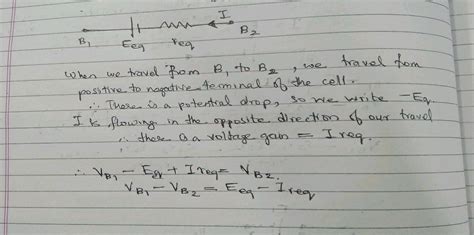 I
B₁ E_eq r_eq B₂
When we travel from B₁ to B₂, we travel from
positive to negative terminal of the cell.
∴ There is a potential drop, so we write −E_q.
I is flowing in the opposite direction of our travel
∴ there is a voltage gain = I r_eq.
∴ V_B₁ − E_q + I r_eq = V_B₂.
V_B₁ − V_B₂ = E_eq − I r_eq